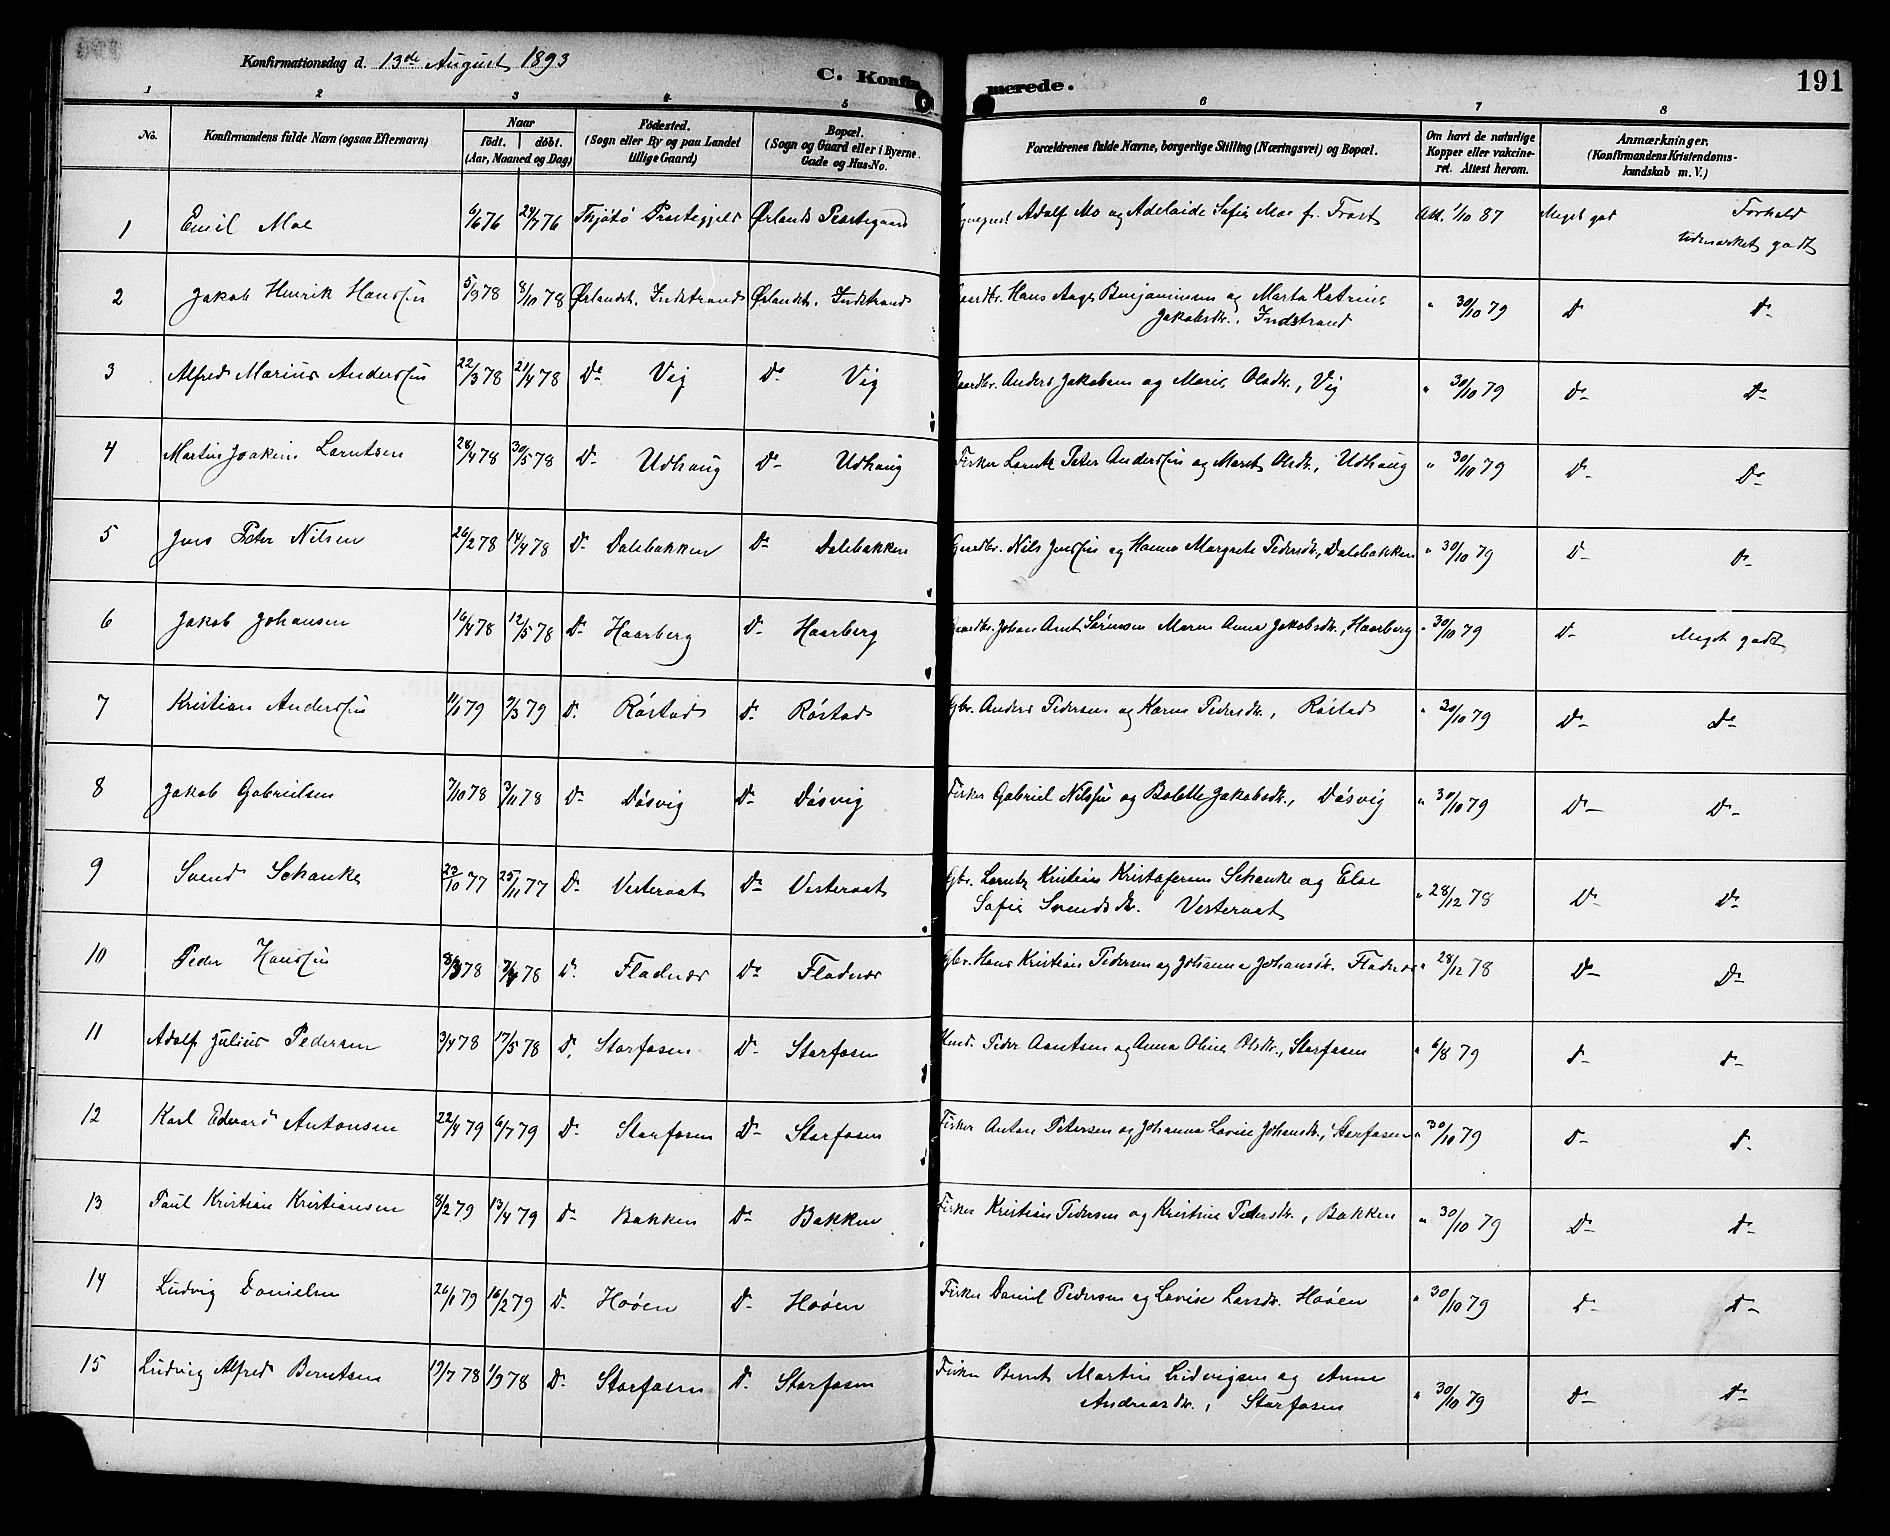 Konfirmationsdag d. 13de August 1893
C. Konfirmerede.
191
1 2 3 4 5 6 7 8
No. Konfirmandens fulde Navn (ogsaa Efternavn) Naar født. døbt. (Aar, Maaned og Dag) Fødested. (Sogn eller By og paa Landet tillige Gaard) Bopæl. (Sogn og Gaard eller i Byerne Gade og Hus-No. Forældrenes fulde Navne, borgerlige Stilling (Næringsvei) og Bopæl. Om havt de naturlige Kopper eller vakcineret. Attest herom. Anmærkninger. (Konfirmandens Kristendomskundskab m. V.)
1 Emil Moe 6/6 76 24/7 76 Thjøtø Præstegjeld Ørlands Præstegaard Adolf Mo og Adelaide Sofie Moe f. Frost Att. 1/10 87 Meget godt Forhold
Udmærket godt
2 Jakob Hinrik Hanssen 5/9 78 8/10 78 Ørlandet. Indstrand Ørlandet. Indstrand Gaardbr. Hans Aage Benjaminsen og Marta Katrine " 30/10 79 D D-
Jakobsdtr. Indstrand
3 Alfred Marius Anderssen 22/3 78 21/4 78 Do Vig Do Vig Gaardbr. Anders Jakobsen og Marie Olsdtr., Vig " 30/10 79 D- Do
4 Martin Joakim Larntsen 28/4 78 30/5 78 D- Udhaug D- Udhaug Fisker Larntz Peter Anderssen og Marit Olsdtr., Udhaug " 30/10 79 D- D-
5 Jens Peter Nilsen 26/2 78 14/4 78 D- Dalebakken Do Dalebakken Gaardbr. Nils Jenssen og Hanna Margrete Pedersdtr., Dalebakken " 30/10 79 D- D-
6 Jakob Johansen 16/4 78 12/5 78 D- Haarberg D- Haarberg Gaardbr. Johan Arnt Sørensen Maren Anna Jakobsdtr., Haarberg " 30/10 79 D- Meget godt
7 Kristian Anderssen 11/1 79 9/3 79 D. Røstad D. Røstad Gbr. Anders Pedersen og Karen Pedersdtr., Røstad " 30/10 79 D- Do
8 Jakob Gabrielsen 7/10 78 3/11 78 D- Døsvig D- Døsvig Fisker Gabriel Nilssen og Bolette Jakobsdtr., Døsvig " 30/10 79 D- D-
9 Svend Schanke 23/10 77 25/11 77 D- Vesteraat Do Vesteraat Gbr. Larntz Kristian Kristofersen Schanke og Else " 28/12 78 D- D-
Sofie Svendsdtr. Vesteraat
10 Peder Hanssen 8/3 78 7/4 78 D. Fladnes Do Fladnes Gbr. Hans Kristian Pedersen og Johanna Johansdtr. Fladnes " 28/12 78 D- D-
11 Adolf Julius Pedersen 3/4 78 17/5 78 D. Storfosen D- Storfosen Peder Aantsen og Anna Oline Olsdtr., Storfosen " 6/8 79 D- D-
12 Karl Edvard Antonsen 22/4 79 6/7 79 D- Storfosen D- Storfosen Fisker Anton Petersen og Johanna Lovise Johansdtr., Storfosen " 30/10 79 D- D-
13 Paul Kristian Kristiansen 8/2 79 13/4 79 D- Bakken D- Bakken Fisker Kristian Pedersen og Kristine Petersdtr., Bakken " 30/10 79 D- D-
14 Ludvig Danielsen 26/1 79 16/2 79 D. Hoøen D- Hoøen Fisker Daniel Pedersen og Lovise Larsdtr. Hoøen " 30/10 79 D- D-
15 Ludvig Alfred Berntsen 19/7 78 1/9 78 D- Storfosen D. Storfosen Fisker Bernt Martin Ludvigsen og Anne " 30/10 79 D- D-
Andreasdtr., Storfosen